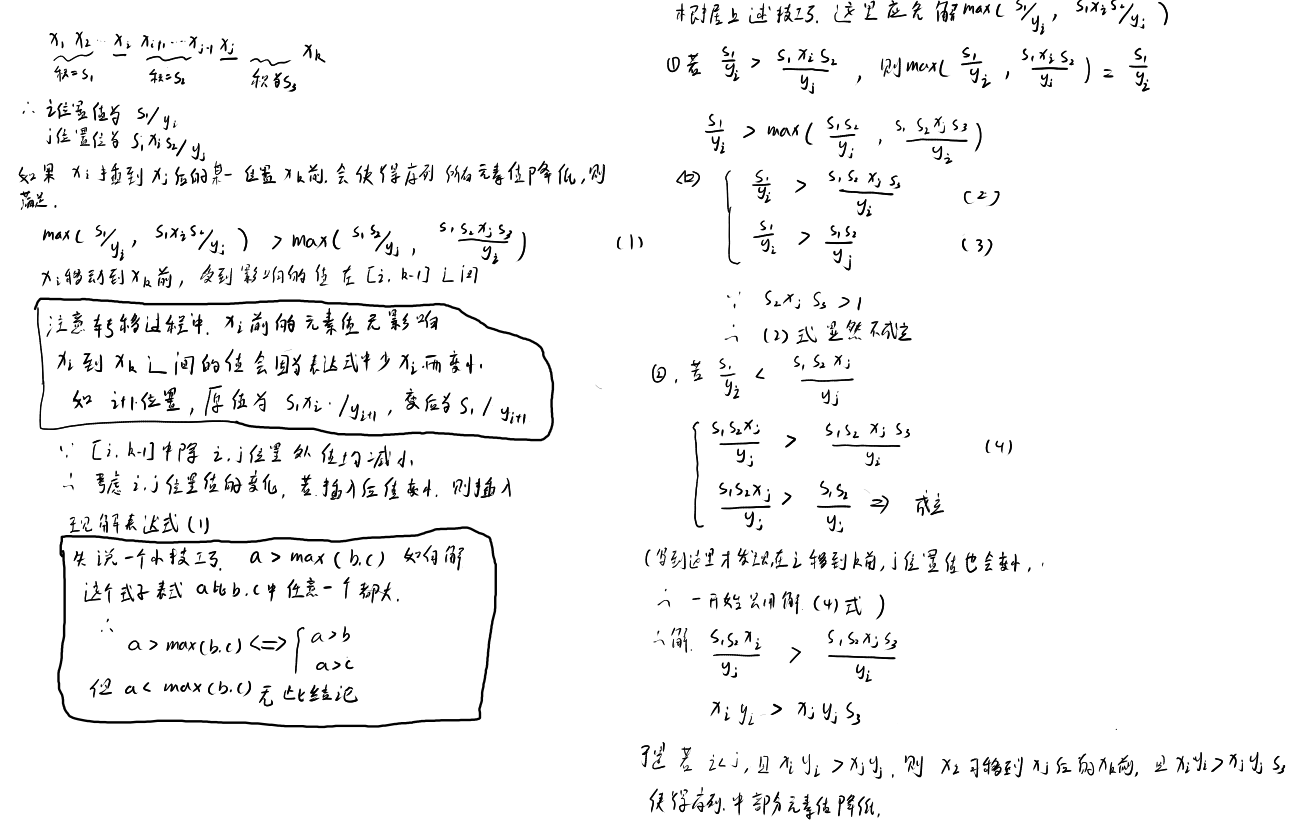 x₁ x₂ … x_i x_{i+1} … x_{j-1} x_j x_k
积=S₁ 积=S₂ 积为S₃
∴ i位置值为 S₁/y_i
j位置值为 S₁x_iS₂/y_j
如果 x_i 插到 x_j 后的某一位置 x_k前,会使得序列所有元素值降低,则
满足.
max( S₁/y_i , S₁x_iS₂/y_j ) > max( S₁S₂/y_j , S₁S₂x_jS₃/y_i ) (1)
x_i移动到x_k前,受到影响的值在[i, k-1]之间
注意转移过程中, x_i前的元素值无影响
x_i到x_k之间的值会因为表达式中少x_i而变小
如 i+1位置,原值为 S₁x_i·/y_{i+1} , 变后为 S₁/y_{i+1}
∵ [i, k-1]中除 i,j位置外值均减小
∴ 考虑i,j位置值的变化,若插入后值变小,则插入
现解表达式(1)
先说一个小技巧, a > max(b,c) 如何解
这个式子表式 a比b,c中任意一个都大.
∴ a > max(b,c) <=> { a>b
a>c
但 a < max(b,c) 无此结论
根据上述技巧,这里应先解max( S₁/y_i , S₁x_iS₂/y_j )
①若 S₁/y_i > S₁x_iS₂/y_j , 则max( S₁/y_i , S₁x_iS₂/y_j ) = S₁/y_i
S₁/y_i > max( S₁S₂/y_j , S₁S₂x_jS₃/y_i )
<=> { S₁/y_i > S₁S₂x_jS₃/y_i (2)
S₁/y_i > S₁S₂/y_j (3)
∵ S₂x_jS₃ > 1
∴ (2)式显然不成立
②.若 S₁/y_i < S₁S₂x_j/y_j
{ S₁S₂x_j/y_j > S₁S₂x_jS₃/y_i (4)
S₁S₂x_j/y_j > S₁S₂/y_j => 成立
(写到这里才发现,在i移到k前,j位置值也会变小,
∴ 一开始只用解(4)式)
∴解. S₁S₂x_i/y_j > S₁S₂x_jS₃/y_i
x_iy_i > x_jy_jS₃
于是若i<j,且x_iy_i>x_jy_j,则x_i可移到x_j后的x_k前,且x_iy_i>x_jy_jS₃
使得序列中部分元素值降低.